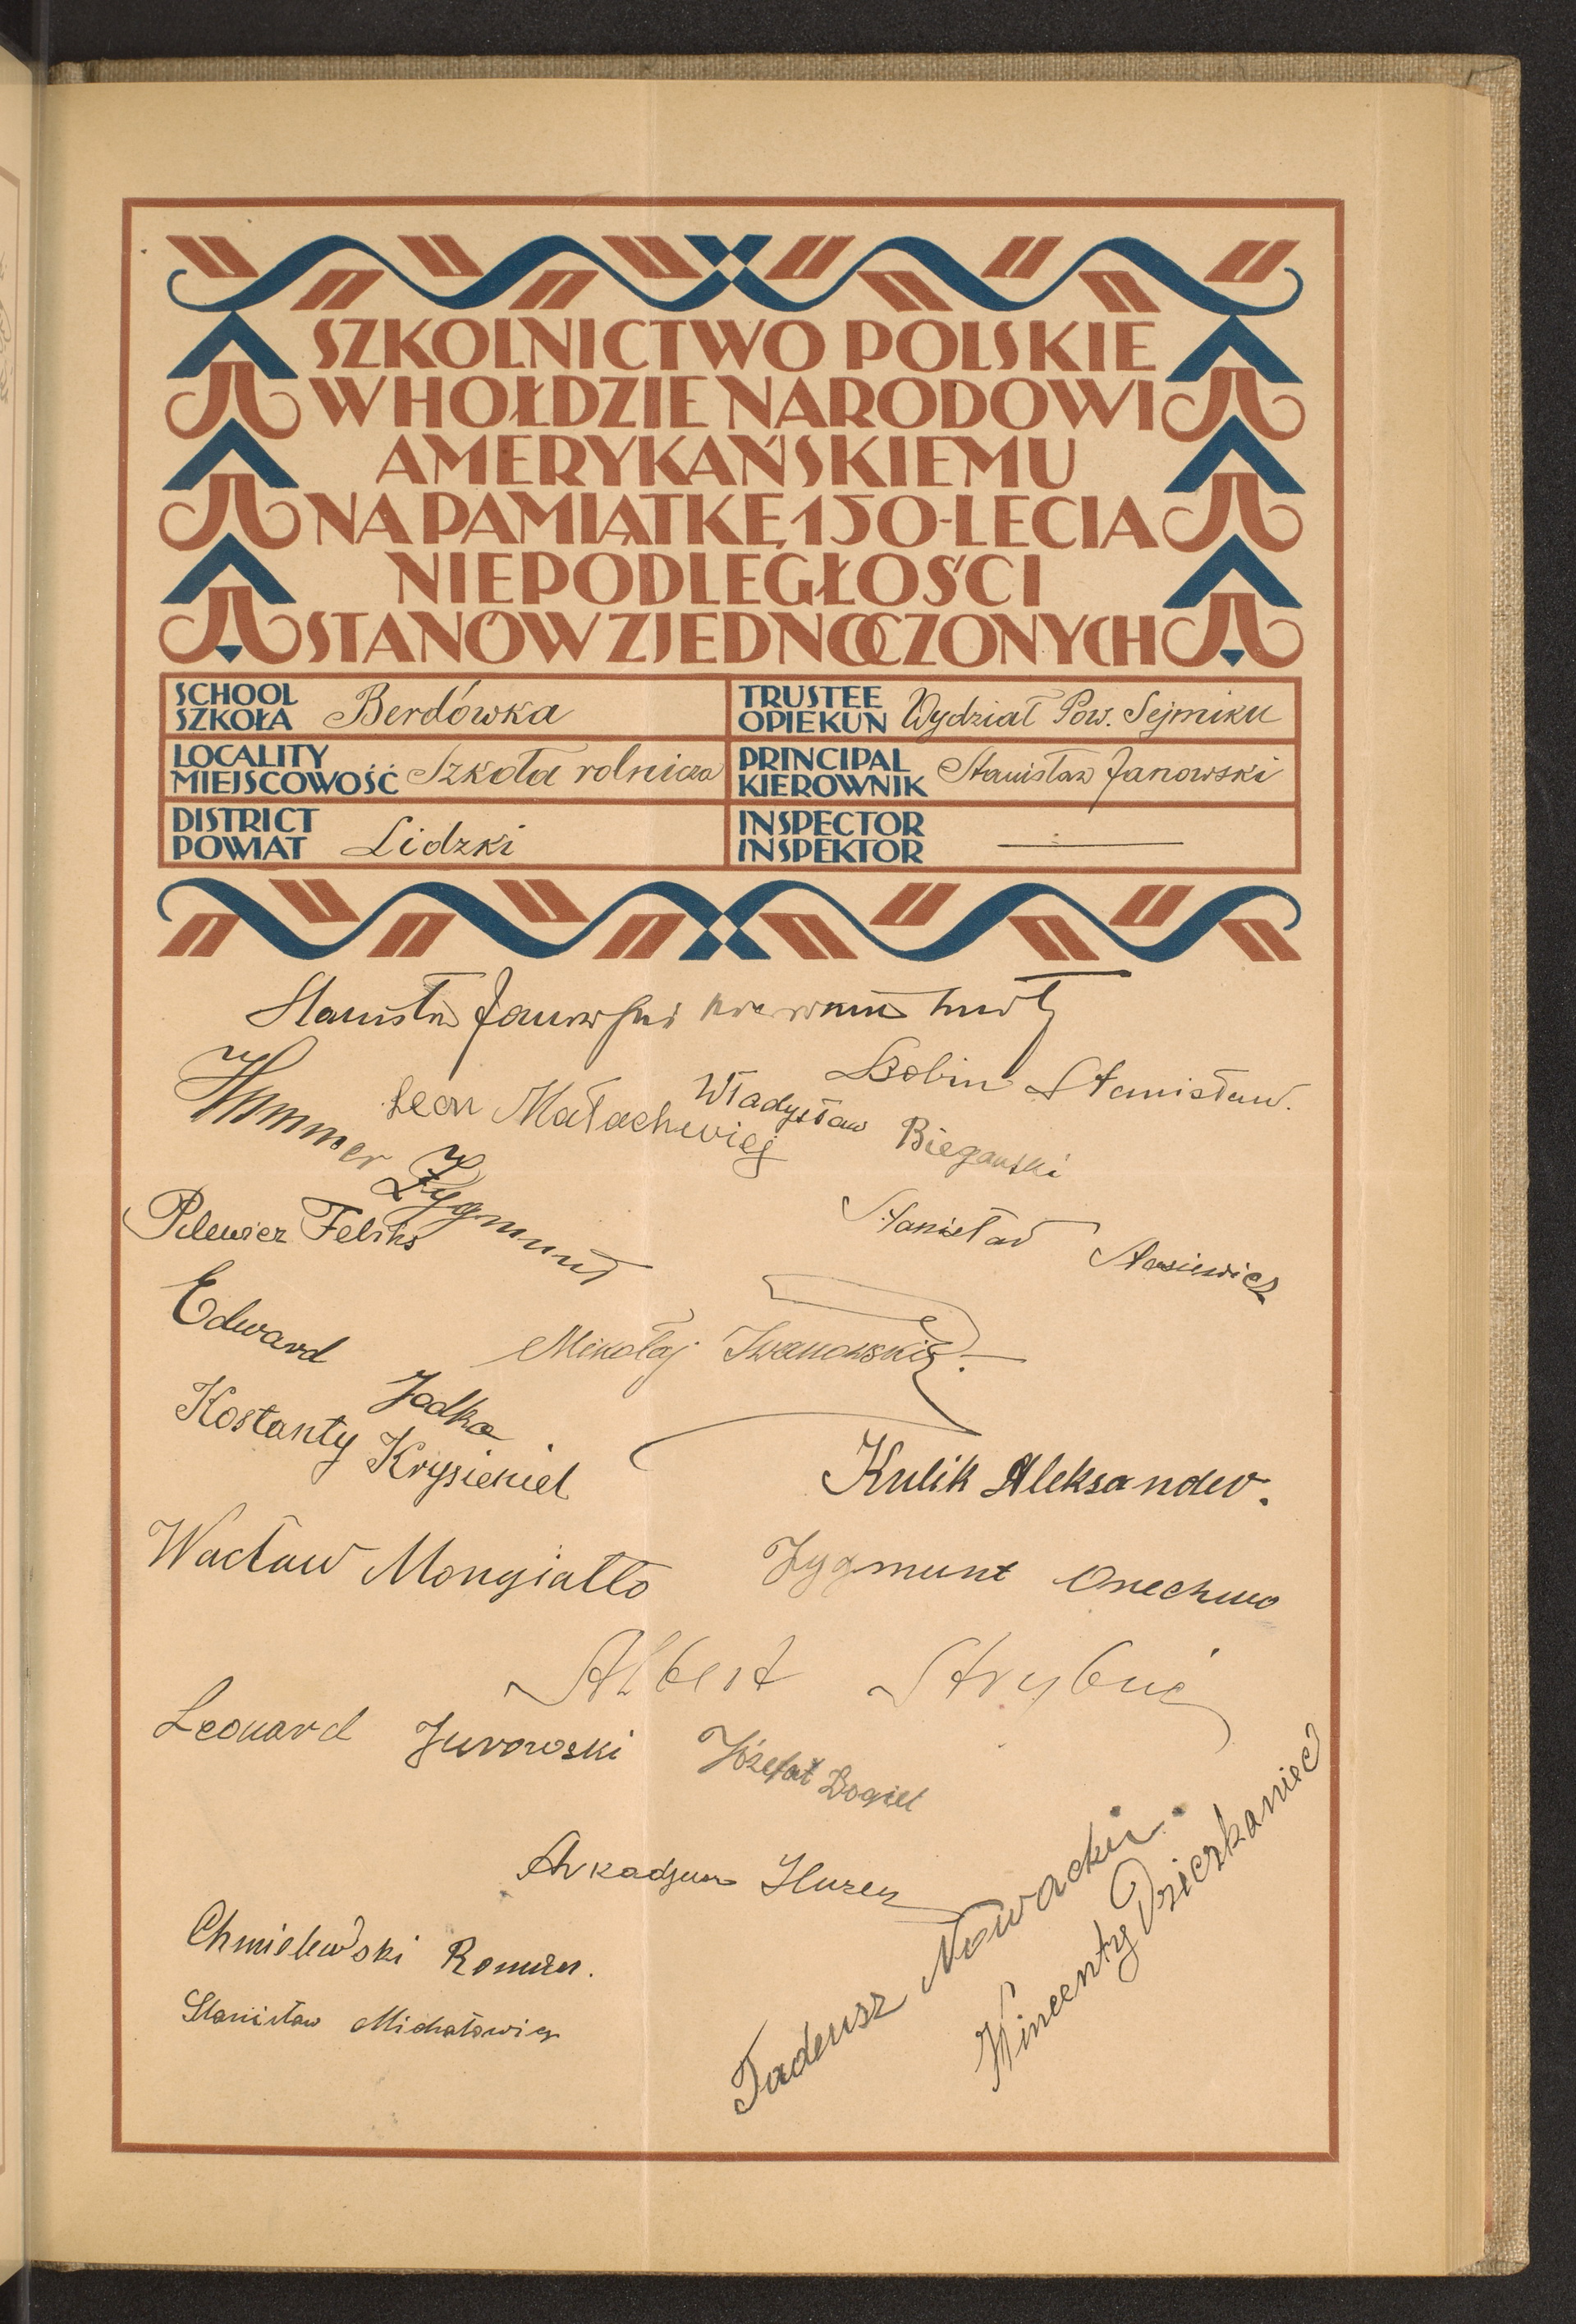 SZKOLNICTWO POLSKIE
W HOŁDZIE NARODOWI
AMERYKAŃSKIEMU
NA PAMIĄTKĘ 150-LECIA
NIEPODLEGŁOŚCI
STANÓW ZJEDNOCZONYCH
SCHOOL
SZKOŁA Berdówka
TRUSTEE
OPIEKUN Wydział Pow. Sejmiku
LOCALITY
MIEJSCOWOŚĆ Szkoła rolnicza
PRINCIPAL
KIEROWNIK Stanisław Janowski
DISTRICT
POWIAT Lidzki
INSPECTOR
INSPEKTOR
Stanisław Janowski
Bobin Stanisław.
Władysław Biegański
Leon Małachwiej
Hummer Zygmunt
Pilewicz Feliks
Stanisław Stasiewicz
Edward Jodko
Mikołaj Iwanowski.
Kostanty Krysieniel
Kulik Aleksander.
Wacław Mongiałło
Zygmunt Orzechwo
Albert
Leonard Jurowski
Józefat Bogiel
Arkadjusz
Tadeusz Nowacki.
Wincenty Dzierkaniec
Chmielewski Roman.
Stanisław Michałowicz